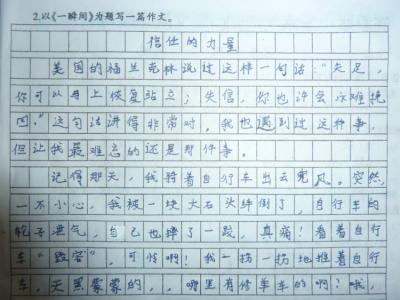 2.以《一瞬间》为题写一篇作文。
信任的力量
美国的福兰克林说过这样一句话:“失足,
你可以马上恢复站立;失信,你也许会永难挽
回。”这句话讲得非常对,我也遇到过这种事,
但让我最难忘的还是那件事。
记得那天,我骑着自行车出去兜风。突然,
一不小心,我被一块大石头绊倒了,自行车的
轮子泄气,自己也摔了一跤,真痛!看着自行
车“毁容”,可怜啊!我一拐一拐地推着自行
车。天黑蒙蒙的,哪里有修单车的啊?啊,